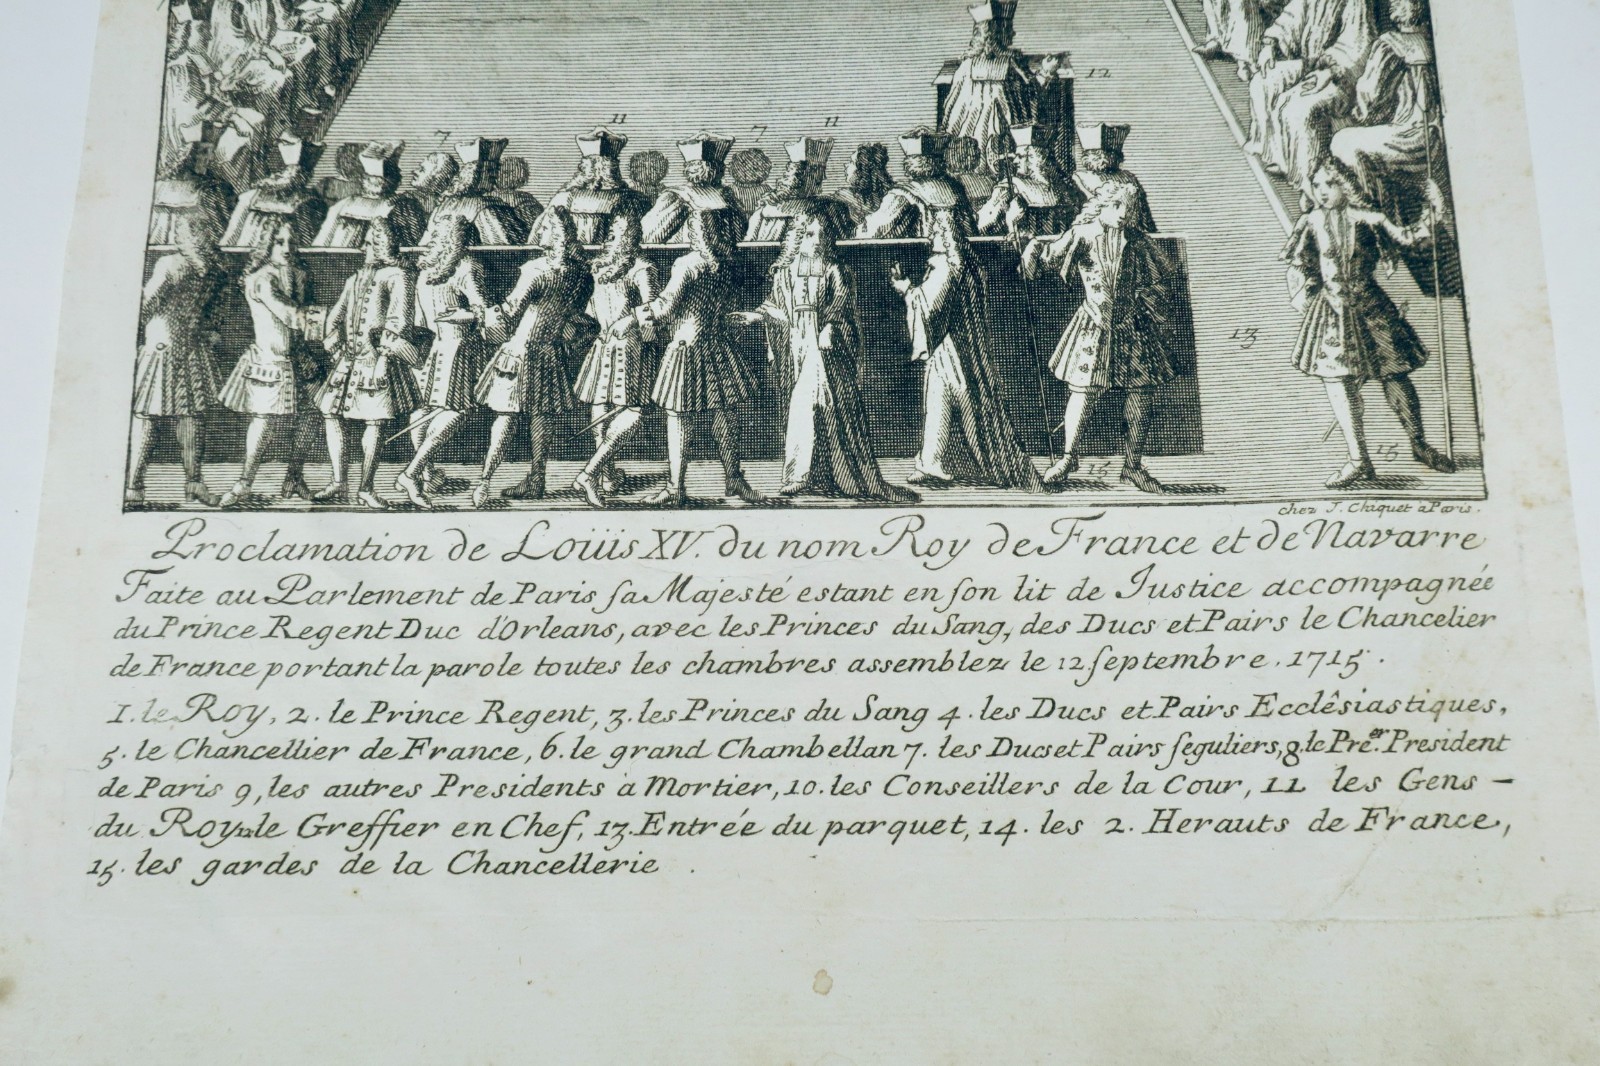 12
7 11 7 11
13
15 15
chez J. Chiquet à Paris.
Proclamation de Loüis XV. du nom Roy de France et de Navarre
Faite au Parlement de Paris sa Majesté estant en son lit de Justice accompagnée
du Prince Regent Duc d'Orleans, avec les Princes du Sang, des Ducs et Pairs le Chancelier
de France portant la parole toutes les chambres assemblez le 12 septembre. 1715.
1. le Roy, 2. le Prince Regent, 3. les Princes du Sang 4. les Ducs et Pairs Ecclêsiastiques,
5. le Chancellier de France, 6. le grand Chambellan 7. les Ducs et Pairs seguliers, 8. le Preer. President
de Paris 9, les autres Presidents a Mortier, 10. les Conseillers de la Cour, 11 les Gens -
du Roy 12 le Greffier en Chef, 13. Entrée du parquet, 14. les 2. Herauts de France,
15. les gardes de la Chancellerie .